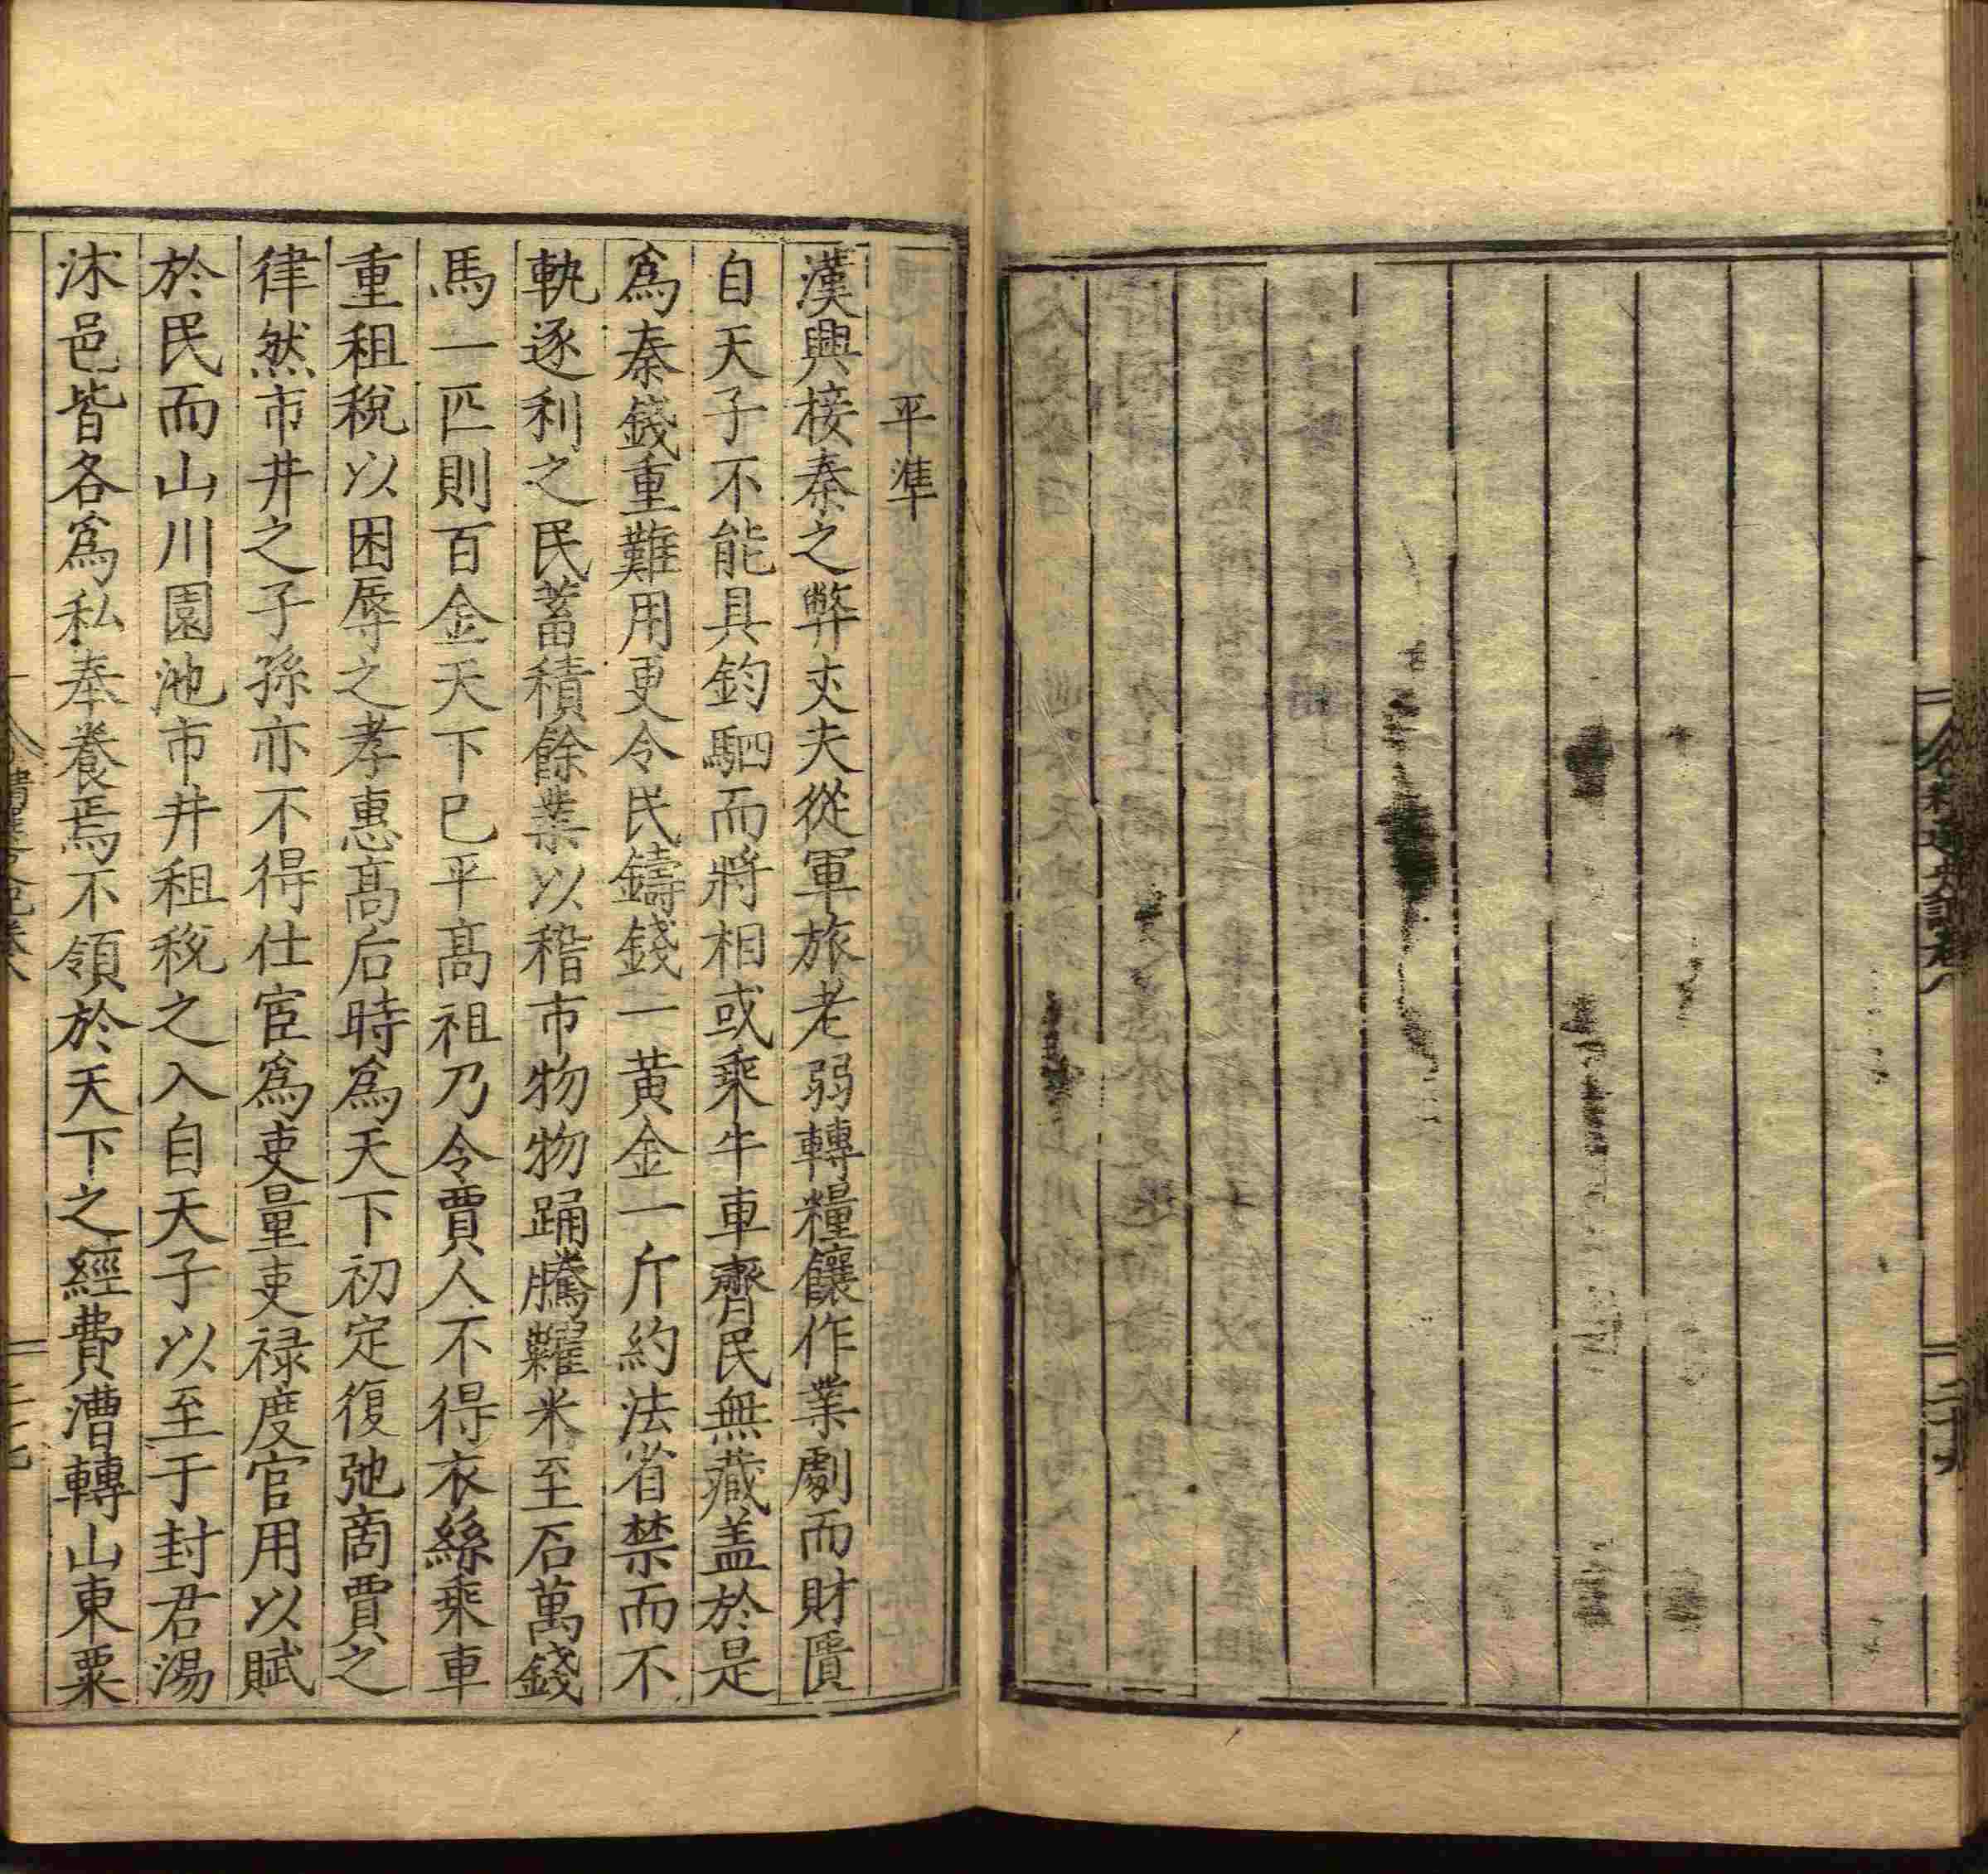 平準
漢興接秦之弊丈夫從軍旅老弱轉糧饟作業劇而財匱
自天子不能具鈞駟而將相或乘牛車齊民無藏盖於是
爲秦錢重難用更令民鑄錢一黃金一斤約法省禁而不
軌逐利之民蓄積餘業以稽市物物踊騰糶米至石萬錢
馬一匹則百金天下已平髙祖乃令賈人不得衣絲乘車
重租稅以困辱之孝惠髙后時爲天下初定復弛商賈之
律然市井之子孫亦不得仕宦爲吏量吏祿度官用以賦
於民而山川園池市井租稅之入自天子以至于封君湯
沐邑皆各爲私奉養焉不領於天下之經費漕轉山東粟